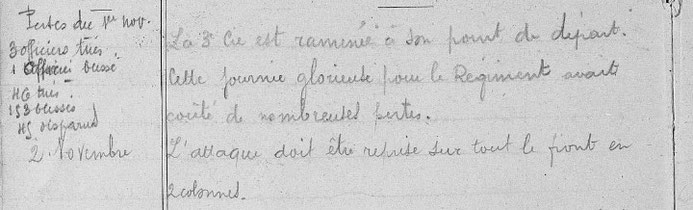 Pertes du 1er nov.
3 officiers tués.
1 officier blessé
46 tués.
153 blessés
45 disparus
La 3e Cie est ramenée à son point de départ.
Cette journée glorieuse pour le Régiment avait
coûté de nombreuses pertes.
2 Novembre
L'attaque doit être reprise sur tout le front en
2 colonnes.